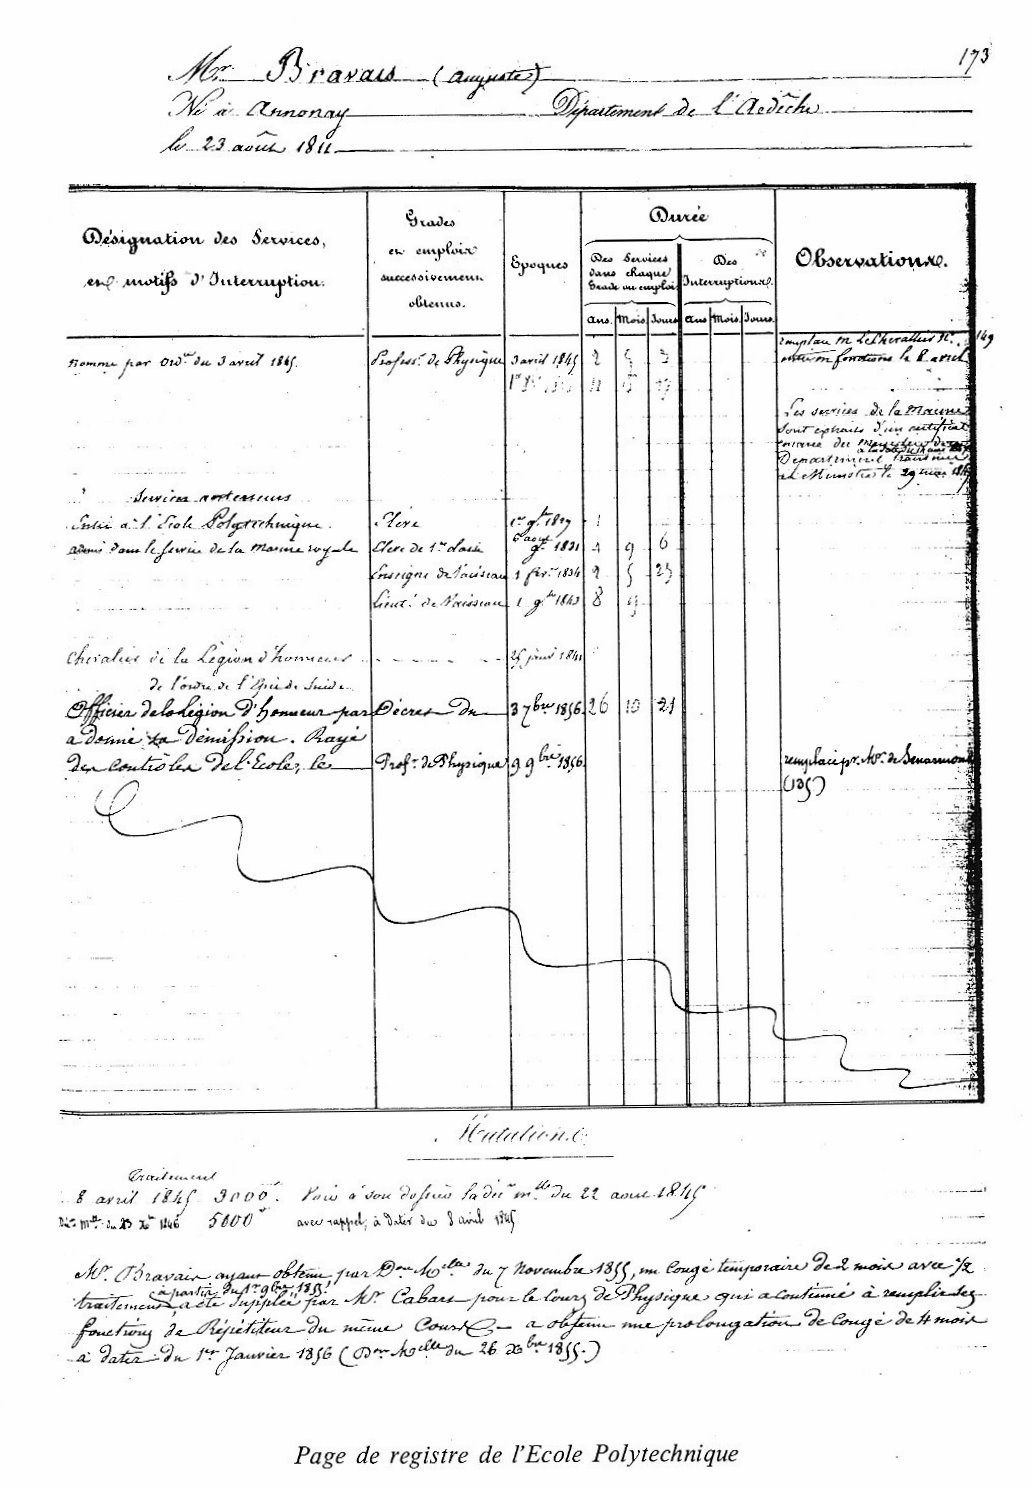 173
Mr. Bravais (Auguste)
Né à Annonay Département de l'Ardèche
le 23 août 1811
Désignation des Services,
et motifs d'Interruption.
Grades
et emplois
successivement
obtenus.
Epoques
Durée
Des Services
dans chaque
Grade ou emploi
Des
Interruptions.
Ans. Mois. Jours. Ans Mois. Jours.
Observations.
remplace M. LeChevallier N° 149
entré en fonctions le 8 avril
Nommé par Ordce du 3 avril 1845. Professr. de Physique 3 avril 1845 2 5 3
Les services de la Marine
sont extraits d'un certificat
Département
Ministre le 29 mars
Services antérieurs
Entré à l'Ecole Polytechnique. Elève 1er 9bre 1829 1
admis dans le service de la Marine royale Elève de 1re classe 6 août 1831 9 6
Enseigne de Vaisseau 1 févr. 1834 9 5 23
Lieutt. de Vaisseau 1 9bre 1843 8
Chevalier de la Légion d'honneur 25 janv 1841
de l'ordre de l'Epée de Suède
Officier de la Légion d'honneur par Décret du 3 7bre 1856 26 10 21
a donné sa démission. Rayé
des contrôles de l'Ecole, le Profr. de Physique 9 9bre 1856
remplacé pr. Mr. de Senarmont
(135)
Mutations
Traitement
8 avril 1845 3000f. Voir à son dossier la décon mlle du 22 août 1845
Déc. mlle du 23 Xbre 1846 5000f avec rappel, à dater du 8 avril 1845
Mr. Bravais ayant obtenu, par Don Mlle du 7 Novembre 1855, un Congé temporaire de 2 mois avec 1/2
à partir du 1er 9bre 1855,
traitement, a été suppléé par Mr. Cabart pour le Cours de Physique qui a continué à remplir les
fonctions de Répétiteur du même Cours – a obtenu une prolongation de Congé de 4 mois
à dater du 1er Janvier 1856 (Don Mlle du 26 Xbre 1855.)
Page de registre de l'Ecole Polytechnique